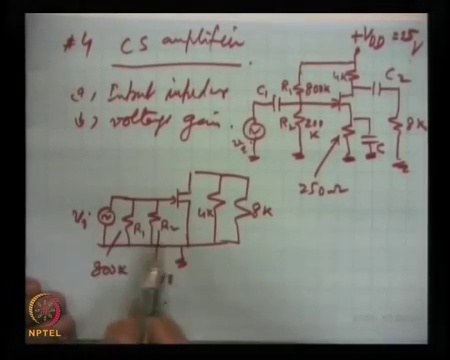 #4 CS amplifier
a, Input impedance
b, voltage gain.
+VDD = 25V
4K
C2
C1
R1 800K
R2 200K
8K
Vi
C
250Ω
Vi
R1
R2
4K
8K
800K
NPTEL